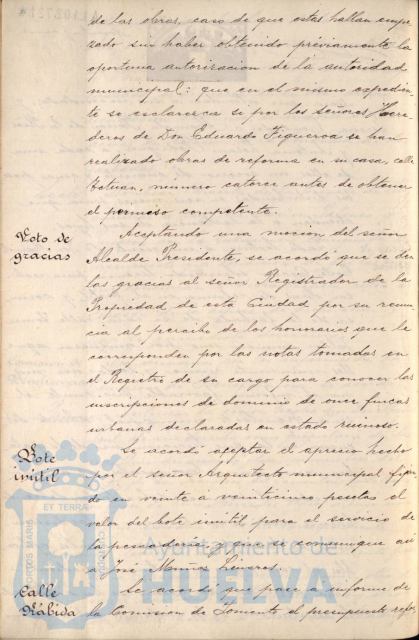 de las obras, caso de que estas hallan empe
zado sin haber obtenido préviamente la
oportuna autorizacion de la autoridad
municipal: que en el mismo espedien
te se esclarezca si por los señores Here
deros de Don Eduardo Figueroa se han
realizado obras de reforma en su casa, calle
Tetuan, número catorce antes de obtener
el permiso competente.
Voto de
gracias
Aceptando una mocion del señor
Alcalde Presidente, se acordó que se den
las gracias al señor Registrador de la
Propiedad de esta Ciudad por su renun
cia al percibo de los honorarios que le
corresponden por las notas tomadas en
el Registro de su cargo para conocer las
inscripciones de dominio de once fincas
urbanas declaradas en estado ruinoso.
Bote
inútil
Se acordó aceptar el aprecio hecho
por el señor Arquitecto municipal fijan
do en veinte a veinticinco pesetas el
valor del bote inútil para el servicio de
la pescadería y que se comunique así
a José Muñoz
Calle
Rábida
Se acordó que pase a informe de
la Comision de Fomento el presupuesto refor
PORTUS MARIS
ET TERRAE
CUSTODIA
Ayuntamiento de
HUELVA